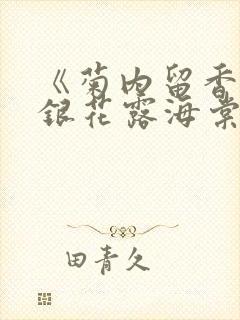 《菊内留香
銀花露海棠
田青久